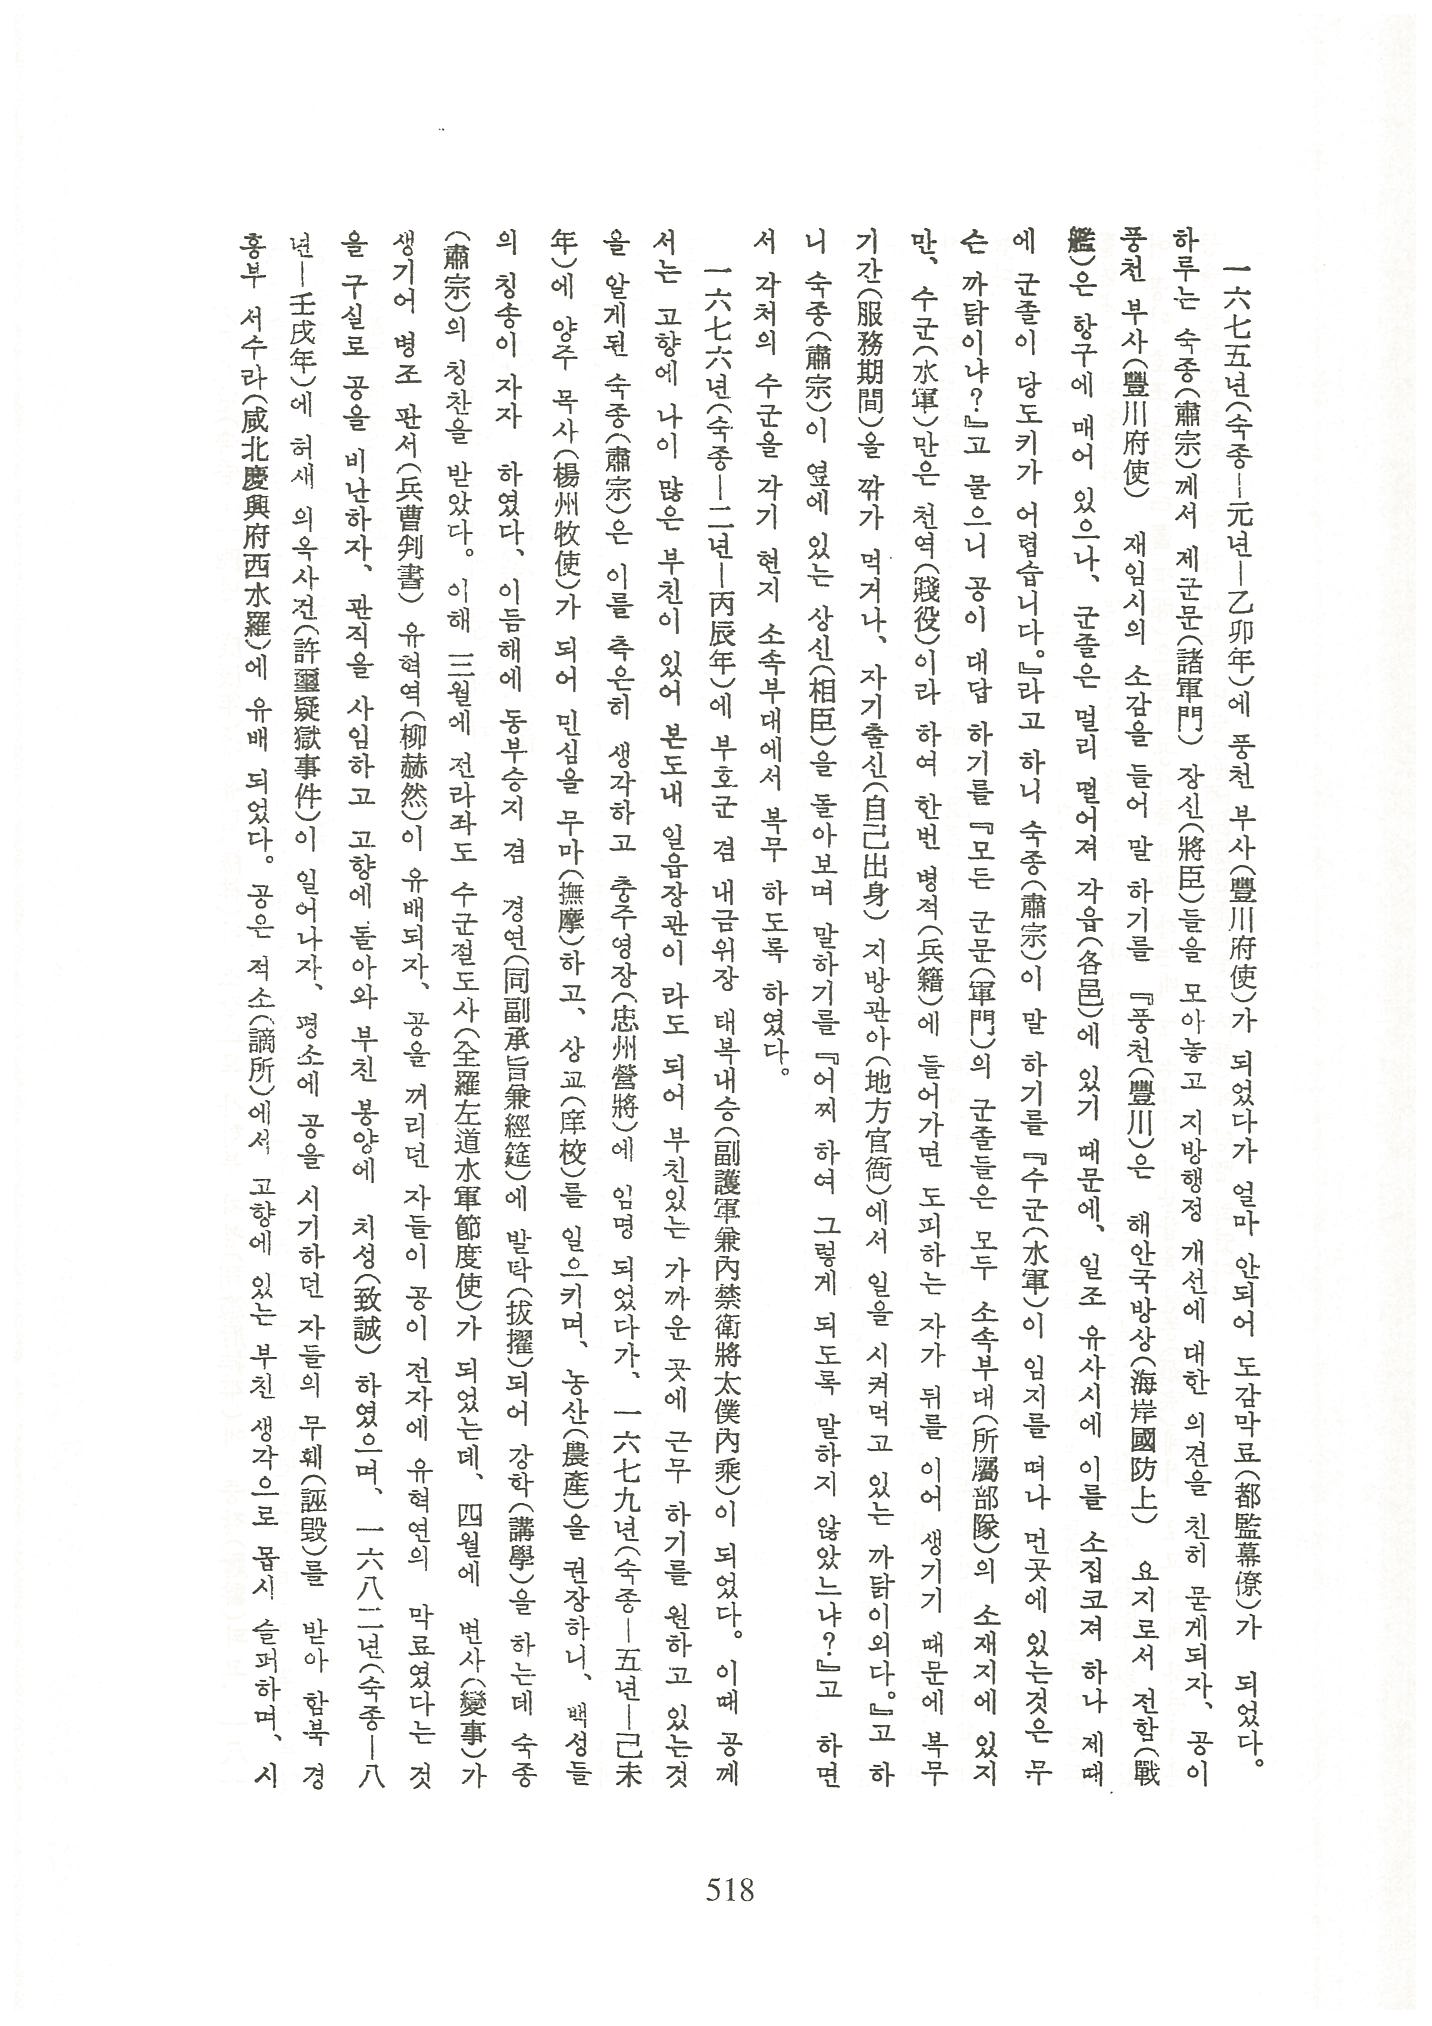 一六七五년(숙종—元년—乙卯年)에 풍천 부사(豐川府使)가 되었다가 얼마 안되어 도감막료(都監幕僚)가 되었다.
하루는 숙종(肅宗)께서 제군문(諸軍門) 장신(將臣)들을 모아놓고 지방행정 개선에 대한 의견을 친히 묻게되자, 공이
풍천 부사(豐川府使) 재임시의 소감을 들어 말 하기를 『풍천(豐川)은 해안국방상(海岸國防上) 요지로서 전함(戰
艦)은 항구에 매어 있으나, 군졸은 멀리 떨어져 각읍(各邑)에 있기 때문에, 일조 유사시에 이를 소집코져 하나 제때
에 군졸이 당도키가 어렵습니다。』라고 하니 숙종(肅宗)이 말 하기를 『수군(水軍)이 임지를 떠나 먼곳에 있는것은 무
슨 까닭이냐?』고 물으니 공이 대답 하기를 『모든 군문(軍門)의 군졸들은 모두 소속부대(所屬部隊)의 소재지에 있지
만, 수군(水軍)만은 천역(賤役)이라 하여 한번 병적(兵籍)에 들어가면 도피하는 자가 뒤를 이어 생기기 때문에 복무
기간(服務期間)을 깎가 먹거나, 자기출신(自己出身) 지방관아(地方官衙)에서 일을 시켜먹고 있는 까닭이외다。』고 하
니 숙종(肅宗)이 옆에 있는 상신(相臣)을 돌아보며 말하기를 『어찌 하여 그렇게 되도록 말하지 않았느냐?』고 하면
서 각처의 수군을 각기 현지 소속부대에서 복무 하도록 하였다.
一六七六년(숙종—二년—丙辰年)에 부호군 겸 내금위장 태복내승(副護軍兼內禁衛將太僕內乘)이 되었다。이때 공께
서는 고향에 나이 많은 부친이 있어 본도내 일읍장관이 라도 되어 부친있는 가까운 곳에 근무 하기를 원하고 있는것
을 알게된 숙종(肅宗)은 이를 측은히 생각하고 충주영장(忠州營將)에 임명 되었다가, 一六七九년(숙종—五년—己未
年)에 양주 목사(楊州牧使)가 되어 민심을 무마(撫摩)하고, 상교(庠校)를 일으키며, 농산(農產)을 권장하니, 백성들
의 칭송이 자자 하였다, 이듬해에 동부승지 겸 경연(同副承旨兼經筵)에 발탁(拔擢)되어 강학(講學)을 하는데 숙종
(肅宗)의 칭찬을 받았다。이해 三월에 전라좌도 수군절도사(全羅左道水軍節度使)가 되었는데, 四월에 변사(變事)가
생기어 병조 판서(兵曹判書) 유혁역(柳赫然)이 유배되자, 공을 꺼리던 자들이 공이 전자에 유혁연의 막료였다는 것
을 구실로 공을 비난하자, 관직을 사임하고 고향에 돌아와 부친 봉양에 치성(致誠) 하였으며, 一六八二년(숙종—八
년—壬戌年)에 허새 의옥사건(許璽疑獄事件)이 일어나자, 평소에 공을 시기하던 자들의 무훼(誣毁)를 받아 함북 경
흥부 서수라(咸北慶興府西水羅)에 유배 되었다。공은 적소(謫所)에서 고향에 있는 부친 생각으로 몹시 슬퍼하며, 시
518